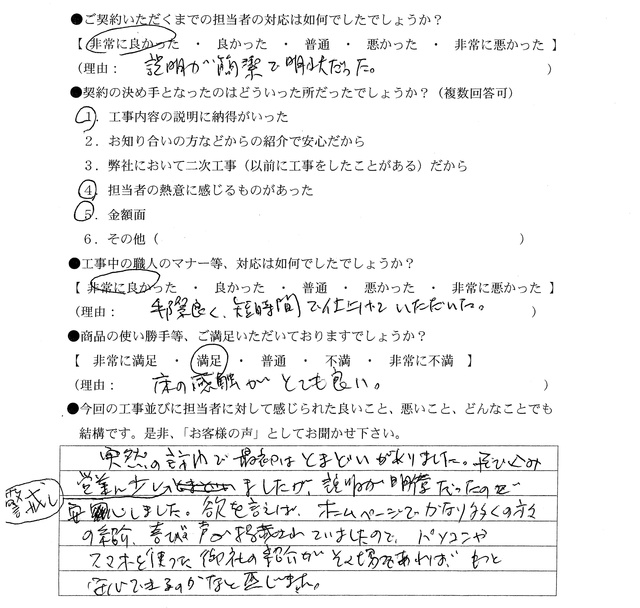 ●ご契約いただくまでの担当者の対応は如何でしたでしょうか？
【 非常に良かった ・ 良かった ・ 普通 ・ 悪かった ・ 非常に悪かった 】
（理由： 説明が簡潔で明快だった。 ）
●契約の決め手となったのはどういった所だったでしょうか？（複数回答可）
１．工事内容の説明に納得がいった
２．お知り合いの方などからの紹介で安心だから
３．弊社において二次工事（以前に工事をしたことがある）だから
４．担当者の熱意に感じるものがあった
５．金額面
６．その他（ ）
●工事中の職人のマナー等、対応は如何でしたでしょうか？
【 非常に良かった ・ 良かった ・ 普通 ・ 悪かった ・ 非常に悪かった 】
（理由： 手際良く、短時間で仕上げていただいた。 ）
●商品の使い勝手等、ご満足いただいておりますでしょうか？
【 非常に満足 ・ 満足 ・ 普通 ・ 不満 ・ 非常に不満 】
（理由： 床の感触がとても良い。 ）
●今回の工事並びに担当者に対して感じられた良いこと、悪いこと、どんなことでも
結構です。是非、「お客様の声」としてお聞かせ下さい。
突然の訪問で最初はとまどいがありました。飛び込み
営業に少し 警戒し ましたが、説明が明瞭だったので
安心しました。欲を言えば、ホームページでかなり多くの方々
の紹介、喜びの声が掲載されていましたので、パソコンや
スマホを使った御社の紹介がその場であれば、もっと
安心できるのかなと感じました。